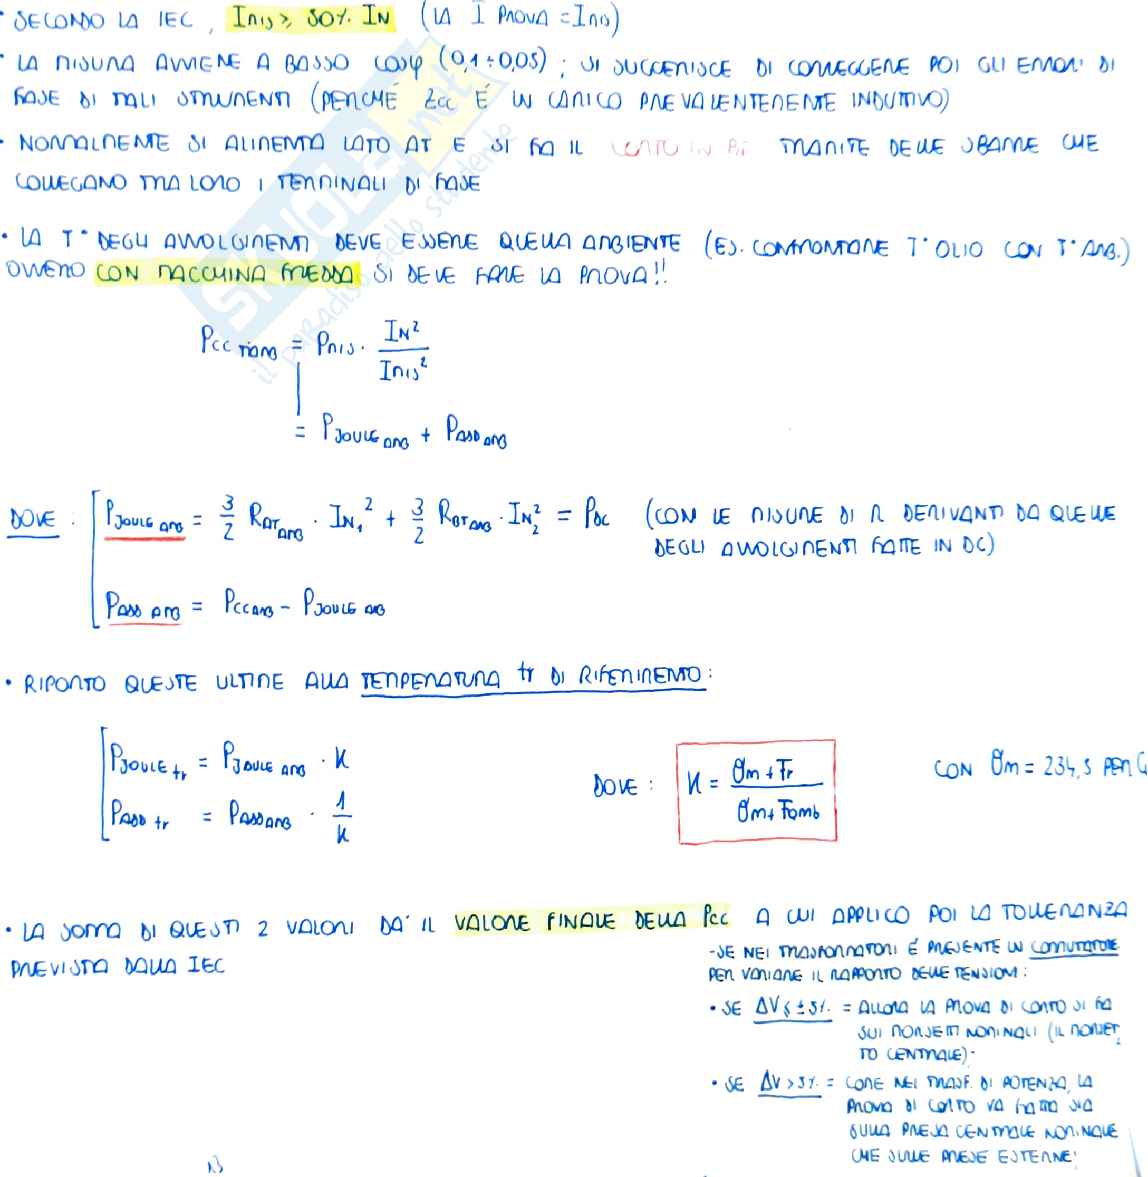 • SECONDO LA IEC, Imis ≥ 50% IN (LA I PROVA = Imis)
• LA MISURA AVVIENE A BASSO COSφ (0,1 ÷ 0,05); SI SUGGERISCE DI CORREGGERE POI GLI ERRORI DI
FASE DI TALI STRUMENTI (PERCHÉ Zcc É UN CARICO PREVALENTEMENTE INDUTTIVO)
• NORMALMENTE SI ALIMENTA LATO AT E SI FA IL CORTO IN BT TRAMITE DELLE SBARRE CHE
COLLEGANO TRA LORO I TERMINALI DI FASE
• LA T° DEGLI AVVOLGIMENTI DEVE ESSERE QUELLA AMBIENTE (ES. CONFRONTARE T° OLIO CON T° AMB.)
OVVERO CON MACCHINA FREDDA SI DEVE FARE LA PROVA!!
SKUOLA.net
il paradiso dello studente
Pcc TAMB = PMIS · IN² / IMIS²
= PJOULE AMB + PADD AMB
DOVE: PJOULE AMB = 3/2 RAT AMB · IN1² + 3/2 RBT AMB · IN2² = PDC (CON LE MISURE DI R DERIVANTI DA QUELLE
DEGLI AVVOLGIMENTI FATTE IN DC)
PADD AMB = PCC AMB - PJOULE AMB
• RIPORTO QUESTE ULTIME ALLA TEMPERATURA tr DI RIFERIMENTO:
PJOULE tr = PJOULE AMB · K
PADD tr = PADD AMB · 1/K
DOVE: K = θm + Tr / θm + Tamb
CON θm = 234,5 PER
• LA SOMMA DI QUESTI 2 VALORI DA' IL VALORE FINALE DELLA Pcc A CUI APPLICO POI LA TOLLERANZA
PREVISTA DALLA IEC
- SE NEI TRASFORMATORI É PRESENTE UN COMMUTATORE
PER VARIARE IL RAPPORTO DELLE TENSIONI:
• SE ΔV ≤ ±5% = ALLORA LA PROVA DI CORTO SI FA
SUI MORSETTI NOMINALI (IL MORSET
TO CENTRALE).
• SE ΔV > 5% = COME NEI TRASF. DI POTENZA, LA
PROVA DI CORTO VA FATTA SIA
SULLA PRESA CENTRALE NOMINALE
CHE SULLE PRESE ESTERNE!